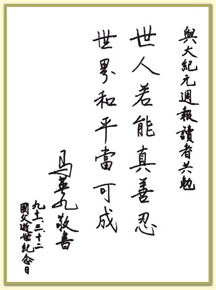 與大紀元週報讀者共勉
世人若能真善忍
世界和平當可成
馬英九敬書
九十、三、十二
國父逝世紀念日